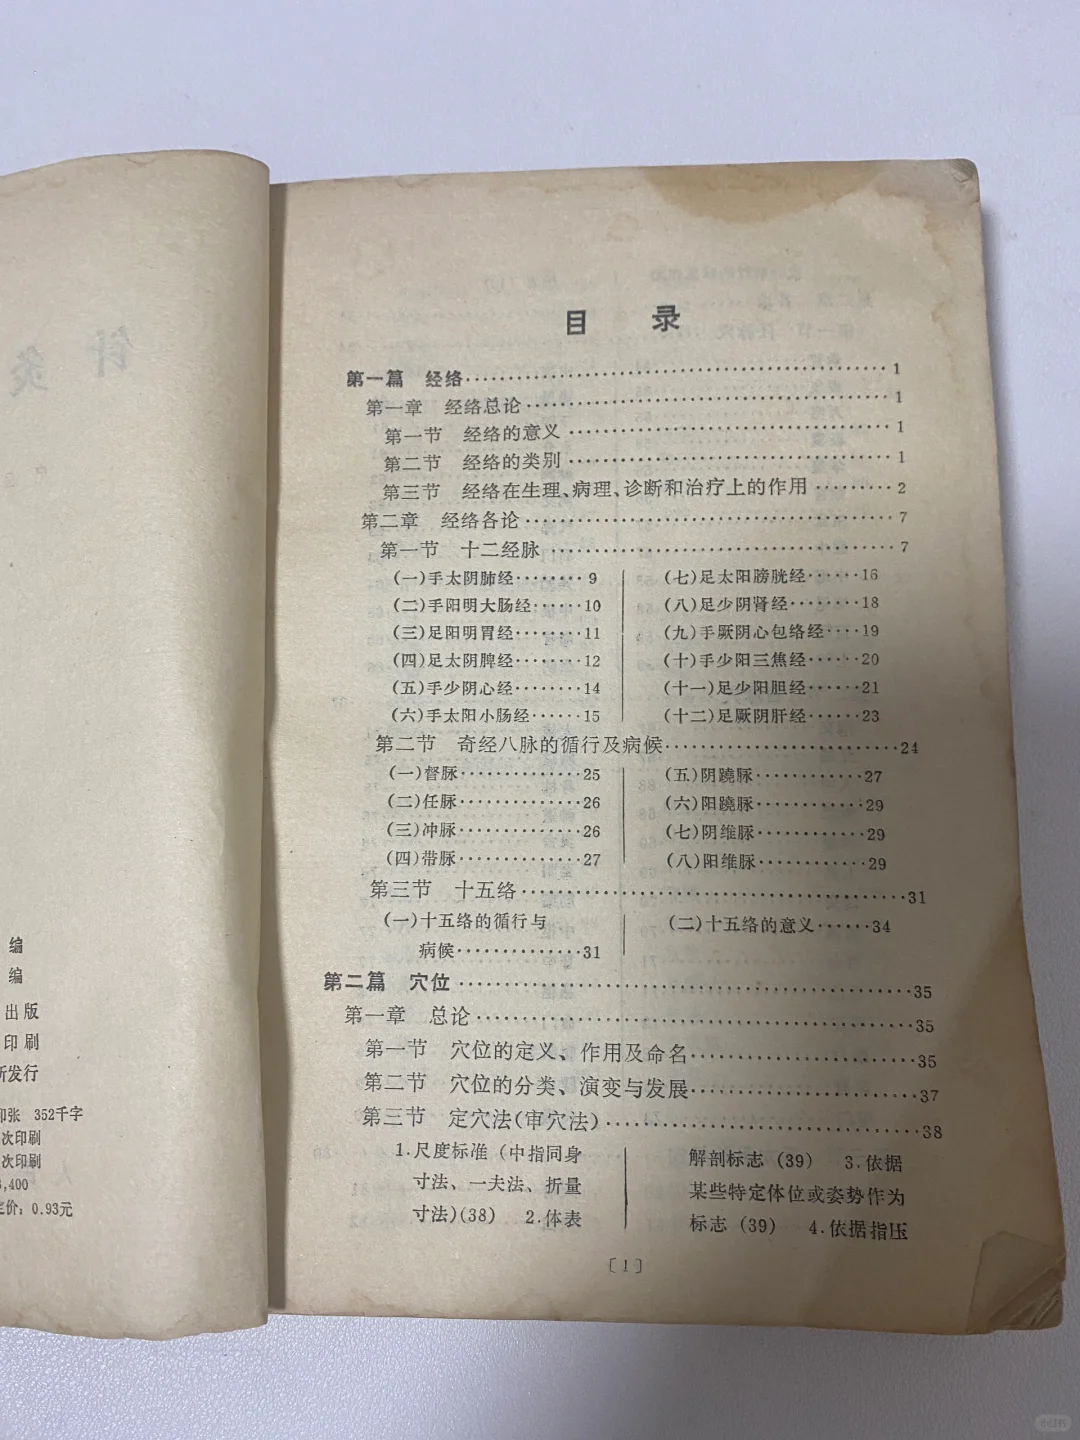 针
灸
编
编
出版
印刷
所发行
印张 352千字
次印刷
次印刷
,400
定价：0.93元
目 录
第一篇 经络……1
第一章 经络总论……1
第一节 经络的意义……1
第二节 经络的类别……1
第三节 经络在生理、病理、诊断和治疗上的作用……2
第二章 经络各论……7
第一节 十二经脉……7
(一)手太阴肺经……9
(二)手阳明大肠经……10
(三)足阳明胃经……11
(四)足太阴脾经……12
(五)手少阴心经……14
(六)手太阳小肠经……15
(七)足太阳膀胱经……16
(八)足少阴肾经……18
(九)手厥阴心包络经……19
(十)手少阳三焦经……20
(十一)足少阳胆经……21
(十二)足厥阴肝经……23
第二节 奇经八脉的循行及病候……24
(一)督脉……25
(二)任脉……26
(三)冲脉……26
(四)带脉……27
(五)阴蹺脉……27
(六)阳蹺脉……29
(七)阴维脉……29
(八)阳维脉……29
第三节 十五络……31
(一)十五络的循行与
病候……31
(二)十五络的意义……34
第二篇 穴位……35
第一章 总论……35
第一节 穴位的定义、作用及命名……35
第二节 穴位的分类、演变与发展……37
第三节 定穴法(审穴法)……38
1.尺度标准（中指同身
寸法、一夫法、折量
寸法)(38) 2.体表
解剖标志（39） 3.依据
某些特定体位或姿势作为
标志（39） 4.依据指压
〔1〕